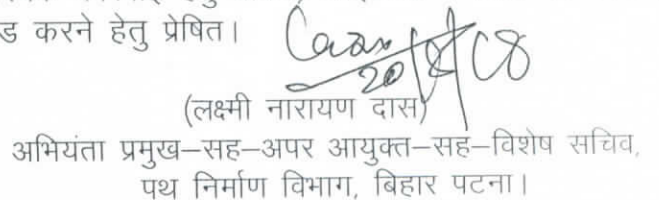 ड करने हेतु प्रेषित।
20/8/08
(लक्ष्मी नारायण दास)
अभियंता प्रमुख–सह–अपर आयुक्त–सह–विशेष सचिव,
पथ निर्माण विभाग, बिहार पटना।